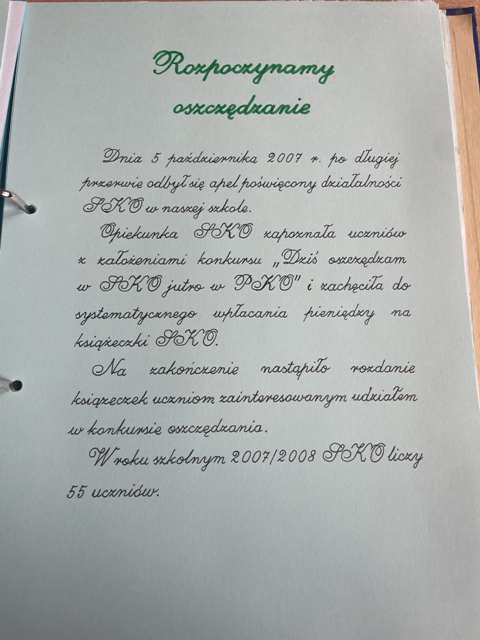 Rozpoczynamy
oszczędzanie
Dnia 5 października 2007 r. po długiej
przerwie odbył się apel poświęcony działalności
SKO w naszej szkole.
Opiekunka SKO zapoznała uczniów
z założeniami konkursu „Dziś oszczędzam
w SKO jutro w PKO” i zachęciła do
systematycznego wpłacania pieniędzy na
książeczki SKO.
Na zakończenie nastąpiło rozdanie
książeczek uczniom zainteresowanym udziałem
w konkursie oszczędzania.
W roku szkolnym 2007/2008 SKO liczy
55 uczniów.